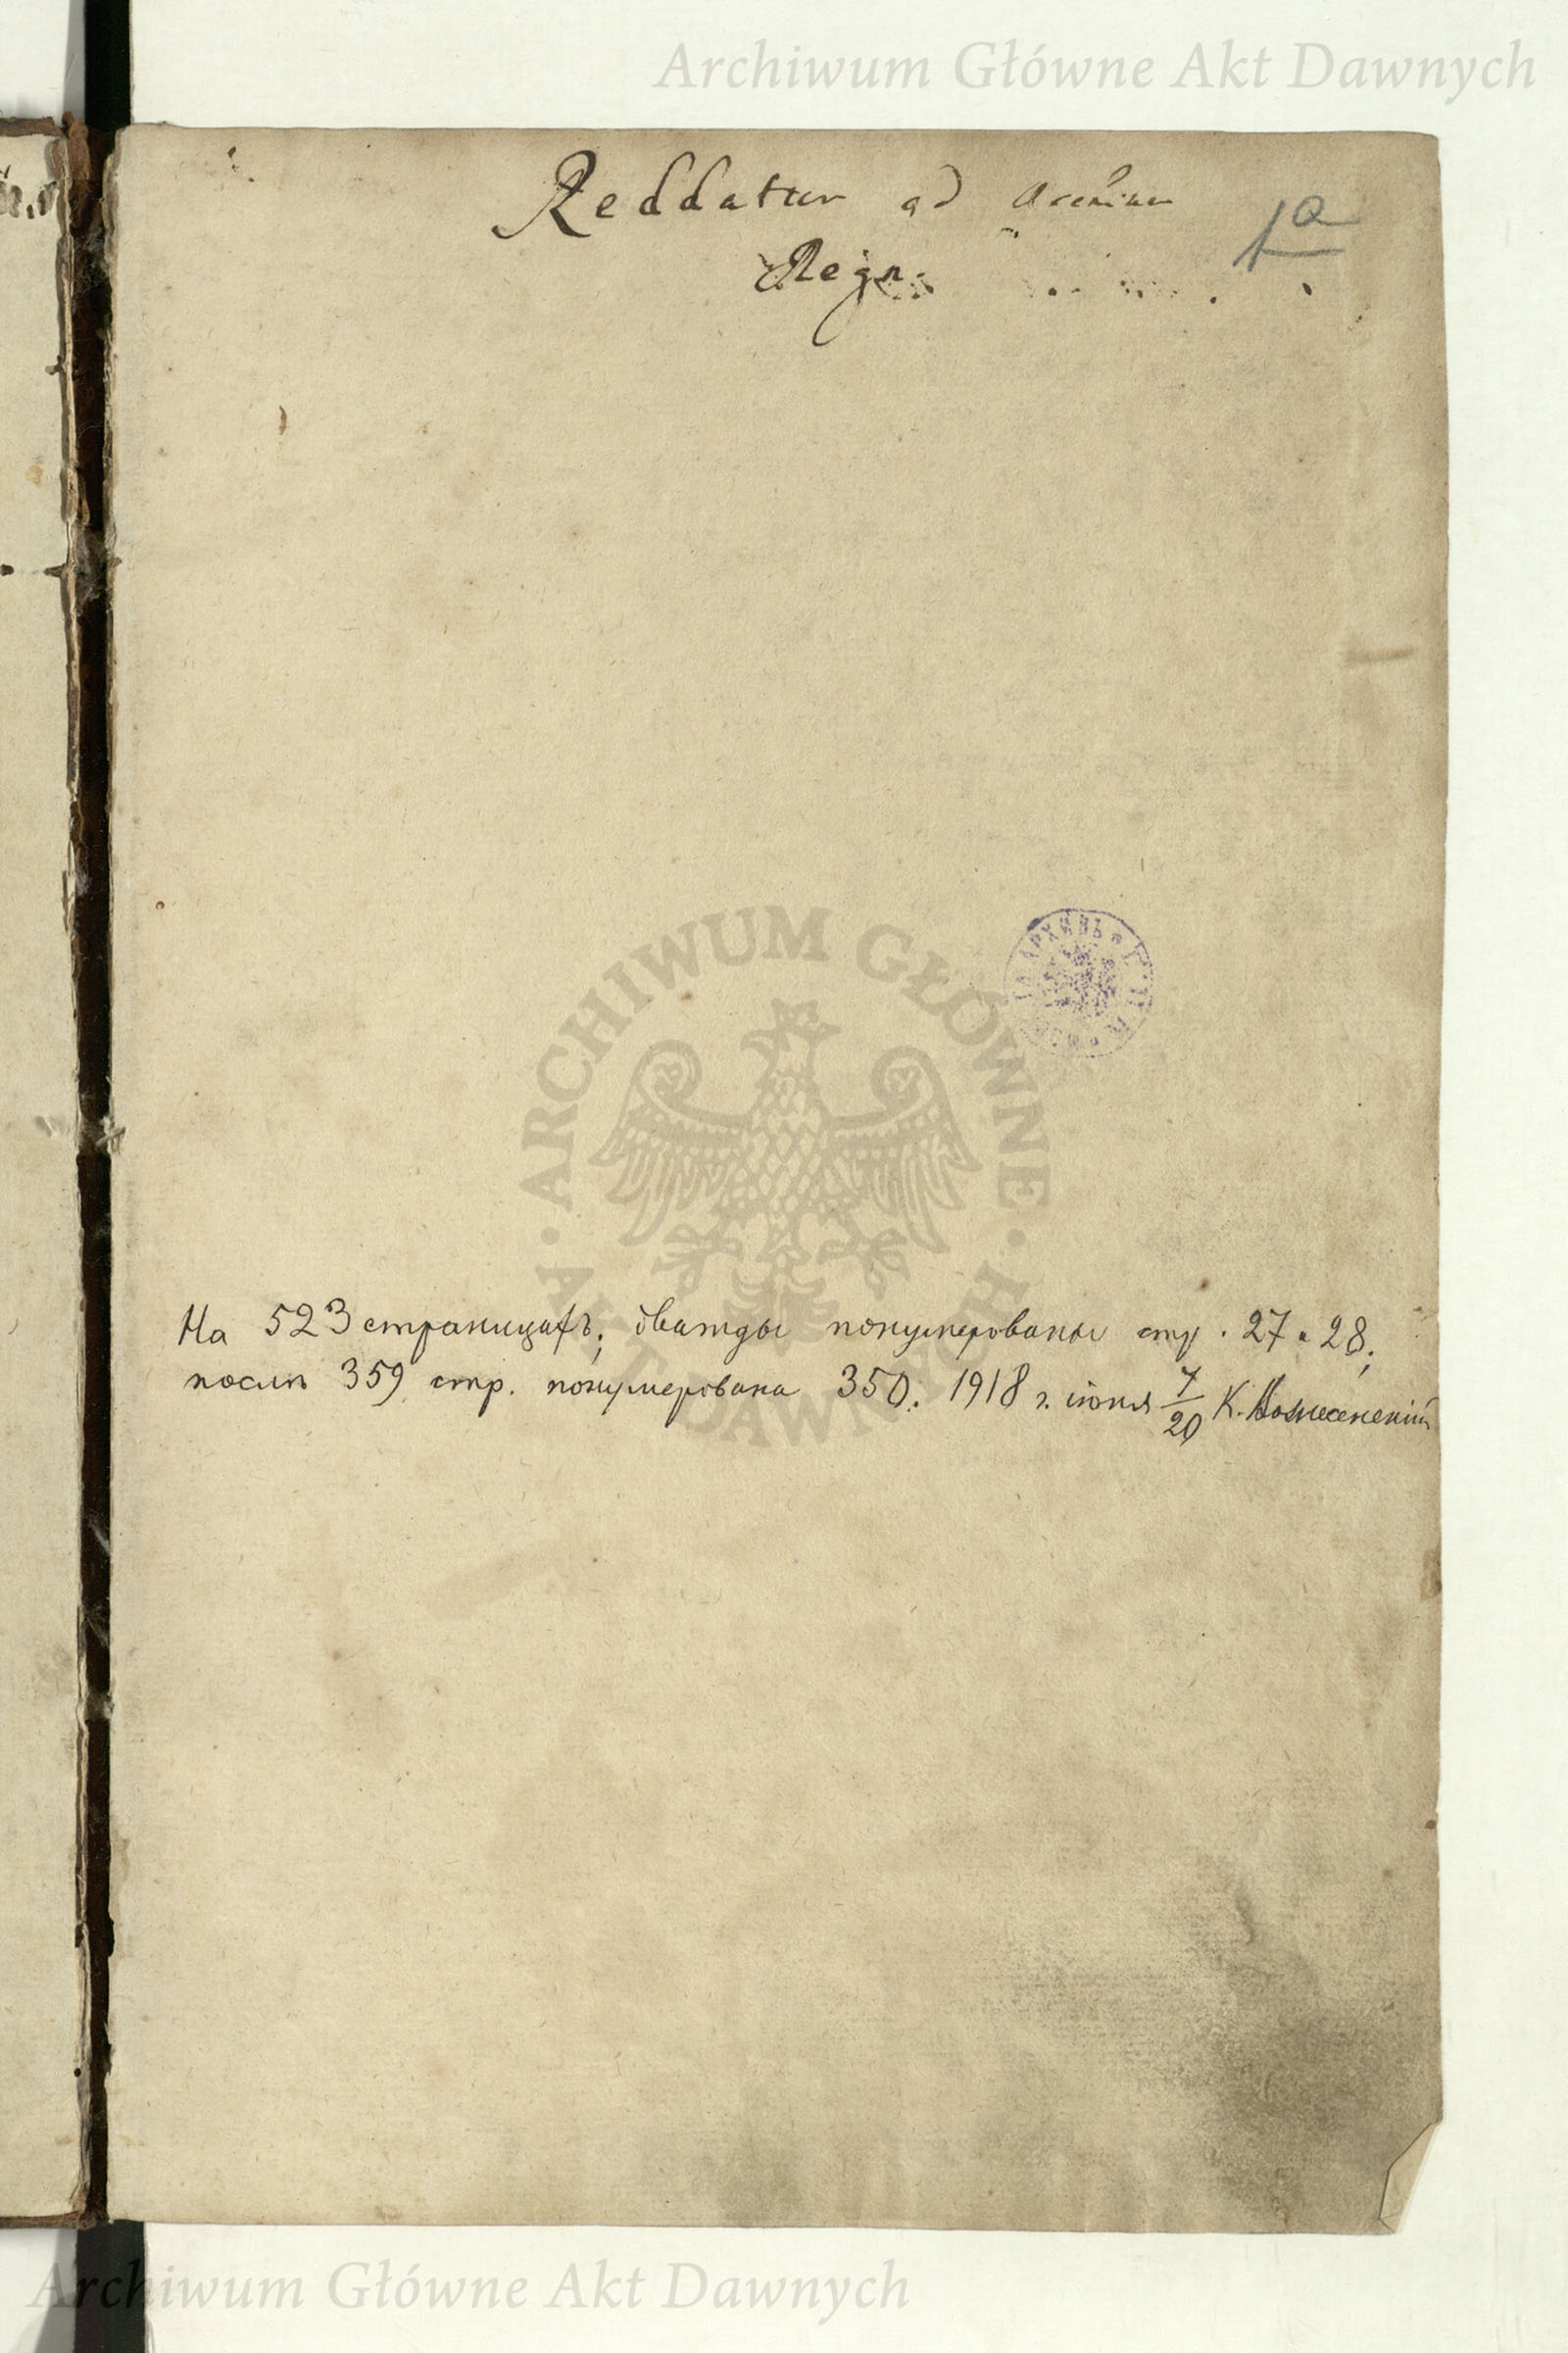 Archiwum Główne Akt Dawnych
Reddatur ad
Regn.
1a
ARCHIWUM GŁÓWNE AKT DAWNYCH
АРХИВЪ
На 523 страницахъ; дважды понумерованы стр. 27 и 28;
послѣ 359 стр. понумерована 350. 1918 г. іюня 7/20 К.
Archiwum Główne Akt Dawnych